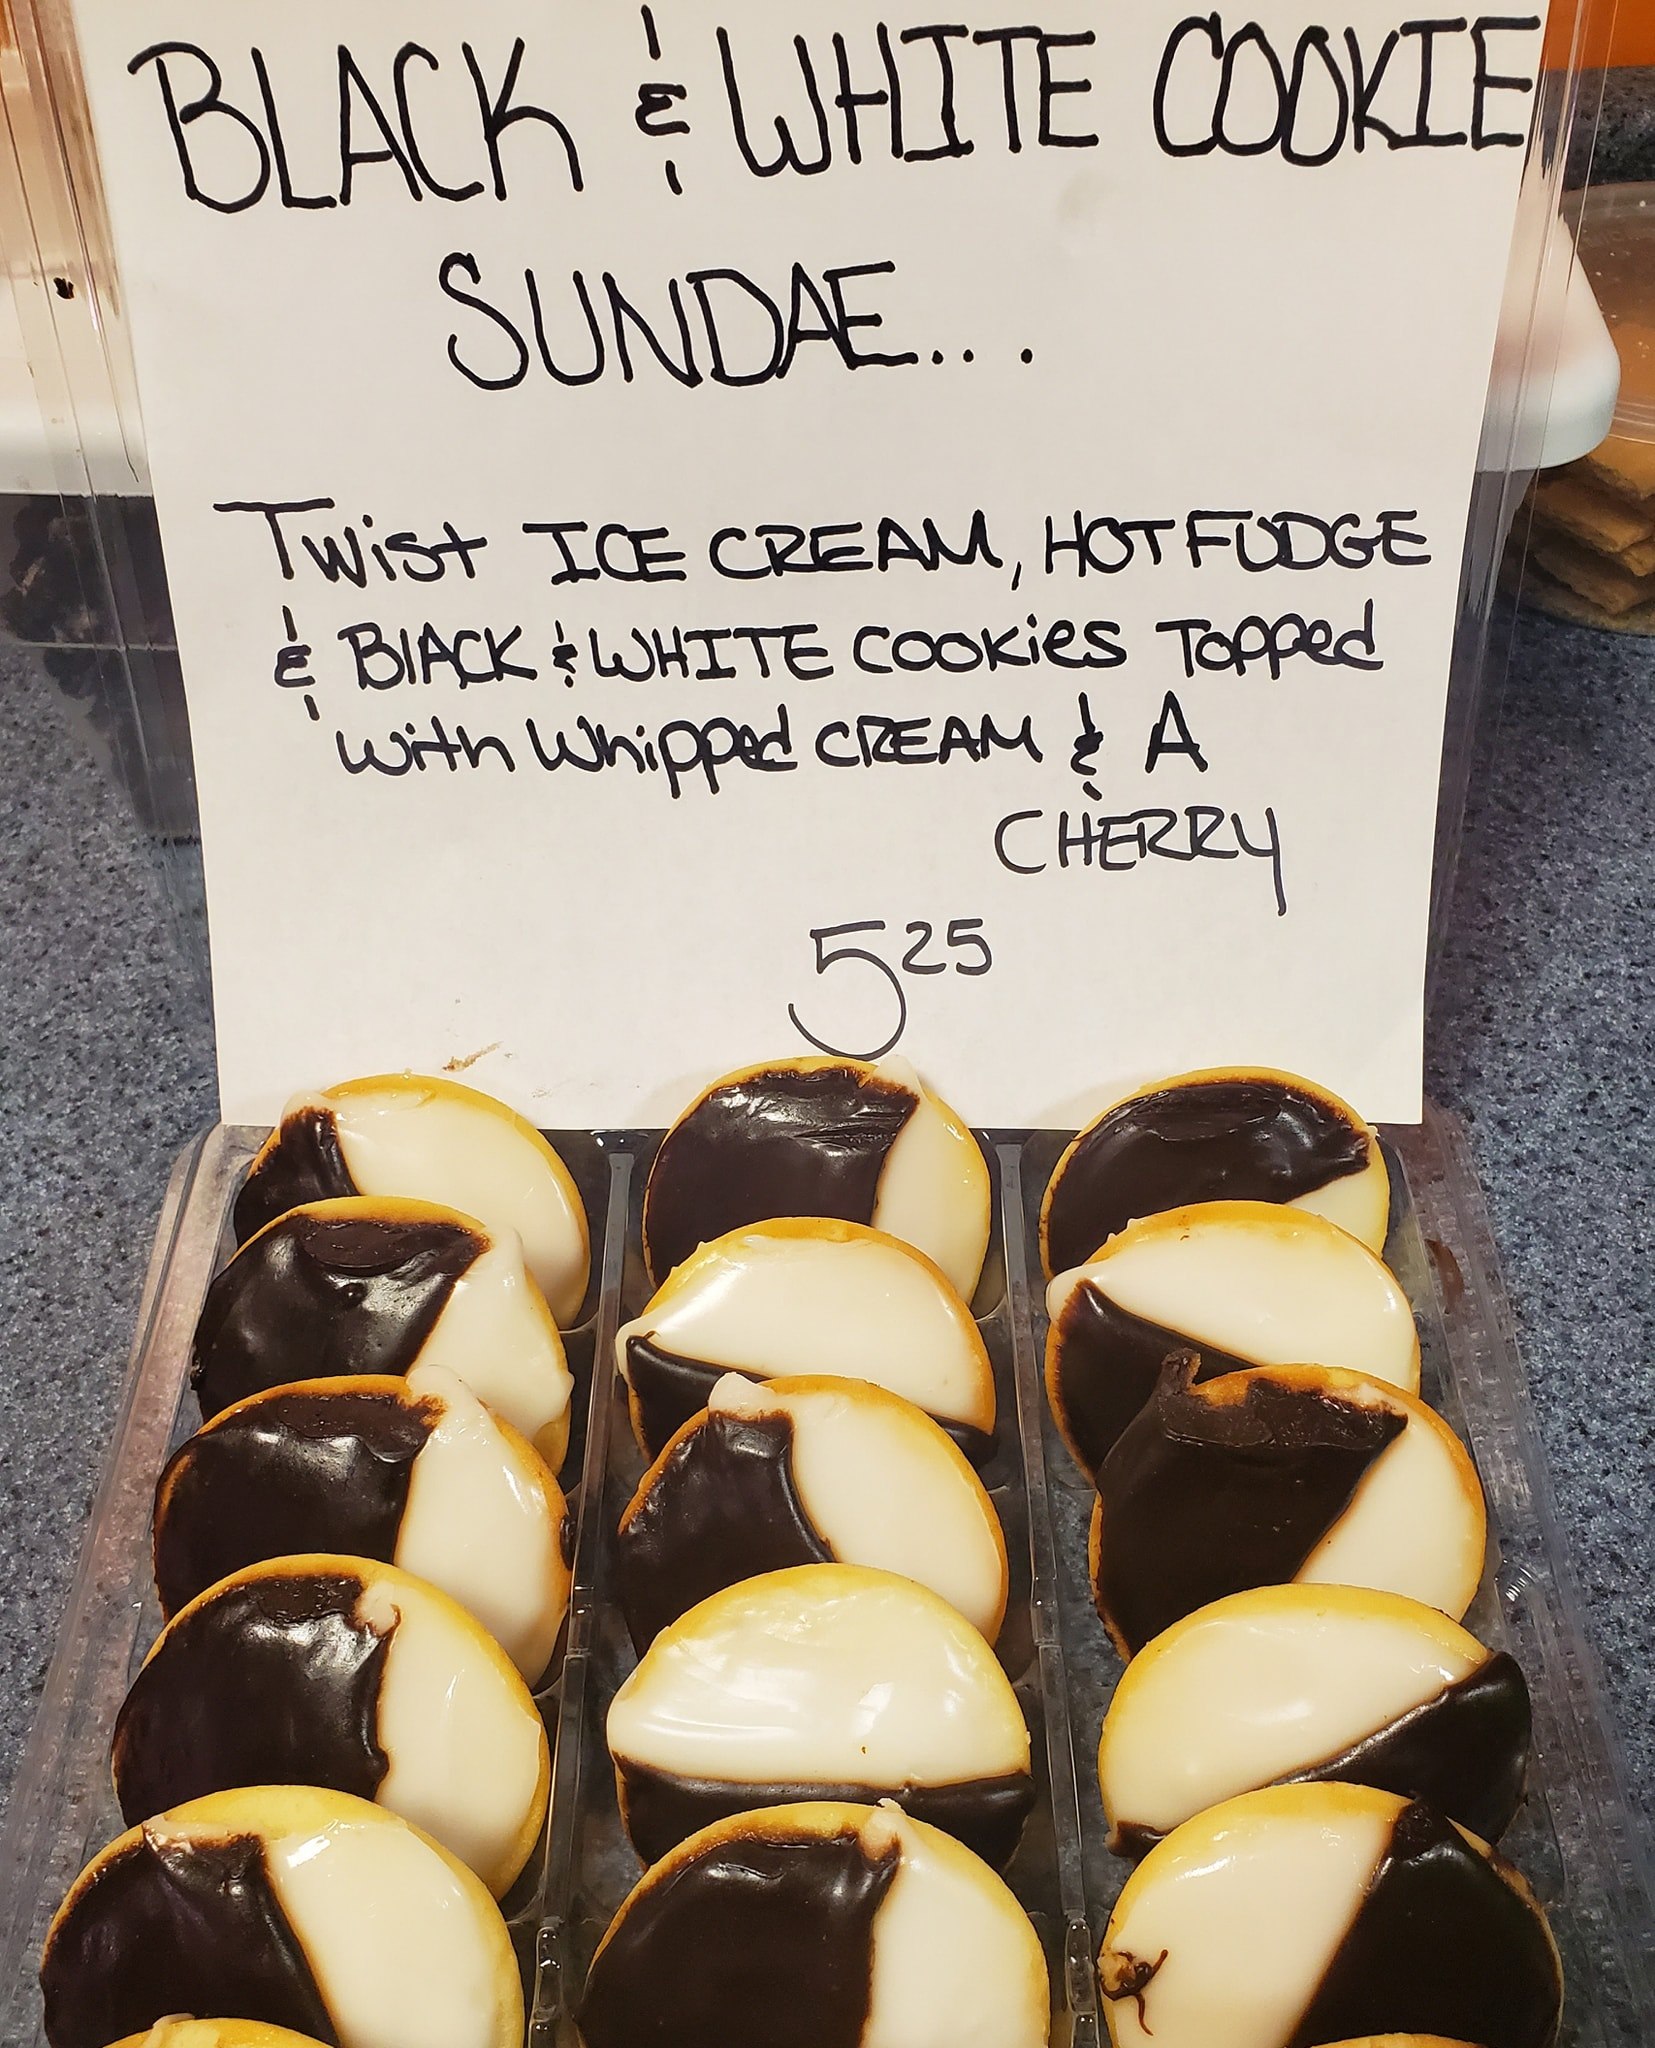 BLACK & WHITE COOKIE
SUNDAE...
Twist ICE CREAM, HOT FUDGE
& BlACK & WHITE COOKies Topped
with Whipped CREAM & A
CHERRY
5 25